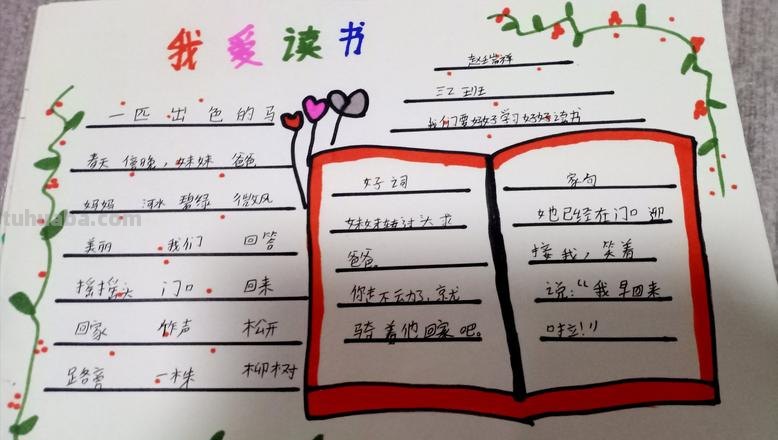 我爱读书
三2班
我们要好好学习好好读书
一匹出色的马
春天 傍晚，妹妹 爸爸
妈妈 河水 碧绿 微风
美丽 我们 回答
摇摇头 门口 回来
回家 作声 松开
路旁 一株 柳树
好词
妹妹转过头求
爸爸
你走不动了，就
骑着他回家吧。
家句
她已经在门口迎
接我，笑着
说：“我早回来
啦！”
tuhuaba.com